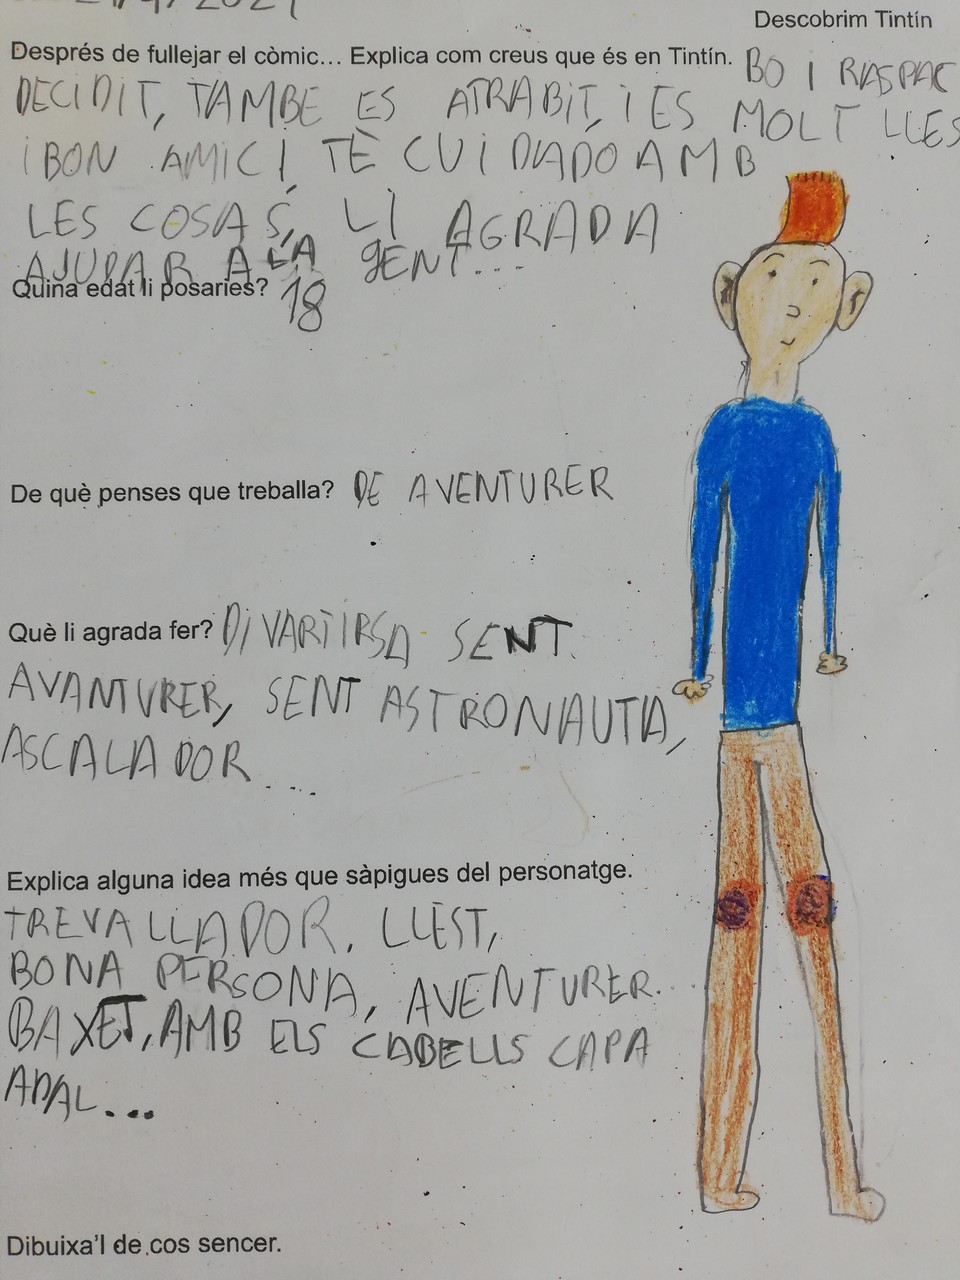 Descobrim Tintín
Després de fullejar el còmic... Explica com creus que és en Tintín. BO I RASPAC
DECIDIT, TAMBE ES ATRABIT, I ES MOLT LLES
I BON AMIC I TÈ CUIDADO AMB
LES COSAS, LI AGRADA
AJUDAR A LA GENT...
Quina edat li posaries? 18
De què penses que treballa? DE AVENTURER
Què li agrada fer? DIVARTIRSA SENT
AVANTURER, SENT ASTRONAUTA,
ASCALADOR....
Explica alguna idea més que sàpigues del personatge.
TREVALLADOR, LLEST,
BONA PERSONA, AVENTURER...
BAXET, AMB ELS CABELLS CAPA
ADAL...
Dibuixa'l de cos sencer.